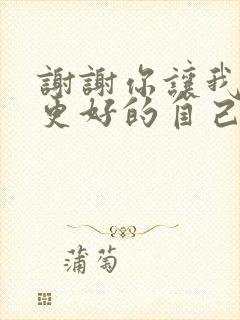 謝謝你讓我
更好的自己
蒲萄